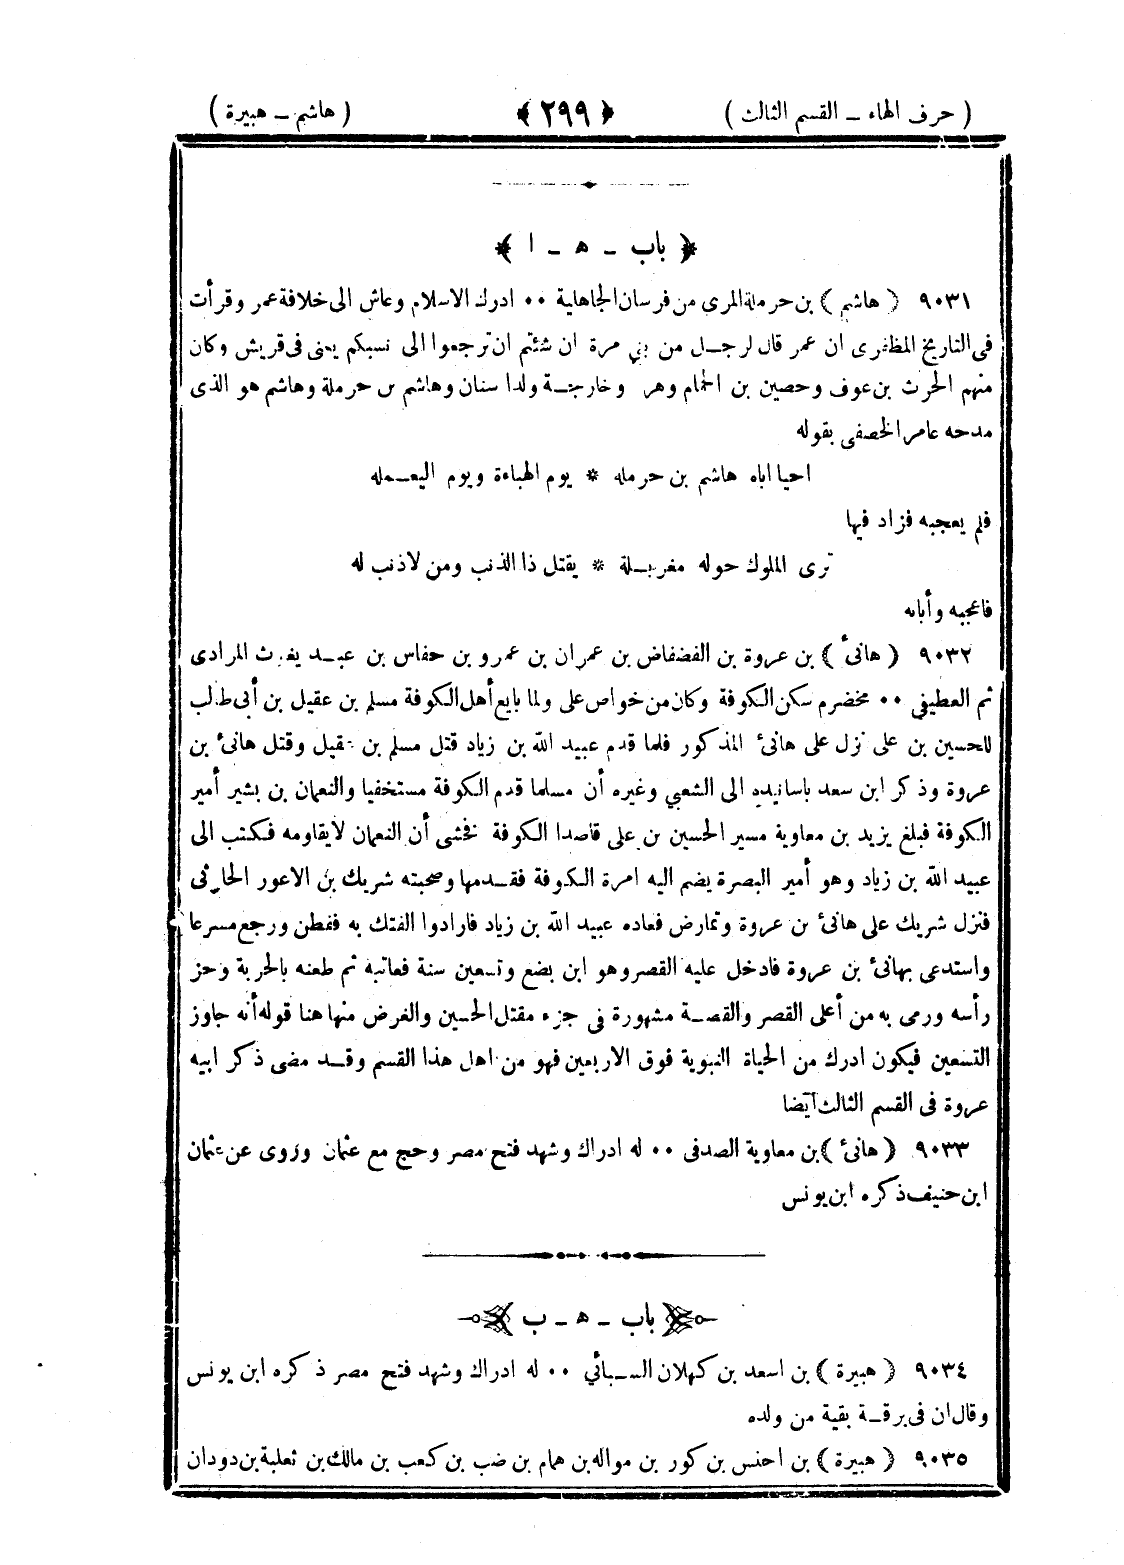 ( حرف الهاء ـ القسم الثالث ) ﴿ ٢٩٩ ﴾ ( هاشم ـ هبيرة )
﴿ باب ـ ه ـ ا ﴾
٩٠٣١ ﴿ هاشم ﴾ بن حرملة المرى من فرسان الجاهلية ٠٠ ادرك الاسلام وعاش الى خلافة عمر وقرأت
فى التاريخ المظفرى ان عمر قال لرجل من بنى مرة ان شئتم ان ترجعوا الى نسبكم يعنى فى قريش وكان
منهم الحرث بن عوف وحصين بن الحمام وهر وخارجة ولدا سنان وهاشم بن حرملة وهاشم هو الذى
مدحه عامر الخصفى بقوله
احيا اباه هاشم بن حرمله * يوم الهباءة ويوم اليعمله
فلم يعجبه فزاد فيها
ترى الملوك حوله مغربلة * يقتل ذا الذنب ومن لاذنب له
فاعجبه وأثابه
٩٠٣٢ ﴿ هانئ ﴾ بن عروة بن الفضفاض بن عمران بن عمرو بن حفاس بن عبد يغوث المرادى
ثم العطيفى ٠٠ مخضرم سكن الكوفة وكان من خواص على ولما بايع أهل الكوفة مسلم بن عقيل بن أبى طالب
للحسين بن على نزل على هانئ المذكور فلما قدم عبيد الله بن زياد قتل مسلم بن عقيل وقتل هانئ بن
عروة وذكر ابن سعد باسانيده الى الشعبي وغيره أن مسلما قدم الكوفة مستخفيا والنعمان بن بشير أمير
الكوفة فبلغ يزيد بن معاوية مسير الحسين بن على قاصدا الكوفة فخشى أن النعمان لايقاومه فكتب الى
عبيد الله بن زياد وهو أمير البصرة يضم اليه امرة الكوفة فقدمها وصحبته شريك بن الاعور الحارثى
فنزل شريك على هانئ بن عروة وتمارض فعاده عبيد الله بن زياد فارادوا الفتك به ففطن ورجع مسرعا
واستدعى بهانئ بن عروة فادخل عليه القصر وهو ابن بضع وتسعين سنة فعاتبه ثم طعنه بالحربة وحز
رأسه ورمى به من أعلى القصر والقصة مشهورة فى جزء مقتل الحسين والغرض منها هنا قوله أنه جاوز
التسعين فيكون ادرك من الحياة النبوية فوق الاربعين فهو من اهل هذا القسم وقد مضى ذكر ابيه
عروة فى القسم الثالث أيضا
٩٠٣٣ ﴿ هانئ ﴾ بن معاوية الصدفى ٠٠ له ادراك وشهد فتح مصر وحج مع عثمان وروى عن عثمان
ابن حنيف ذكره ابن يونس
﴿ باب ـ ه ـ ب ﴾
٩٠٣٤ ﴿ هبيرة ﴾ بن اسعد بن كهلان السبائي ٠٠ له ادراك وشهد فتح مصر ذكره ابن يونس
وقال ان فى برقة بقية من ولده
٩٠٣٥ ﴿ هبيرة ﴾ بن احنس بن كور بن مواله بن همام بن ضب بن كعب بن مالك بن ثعلبة بن دودان